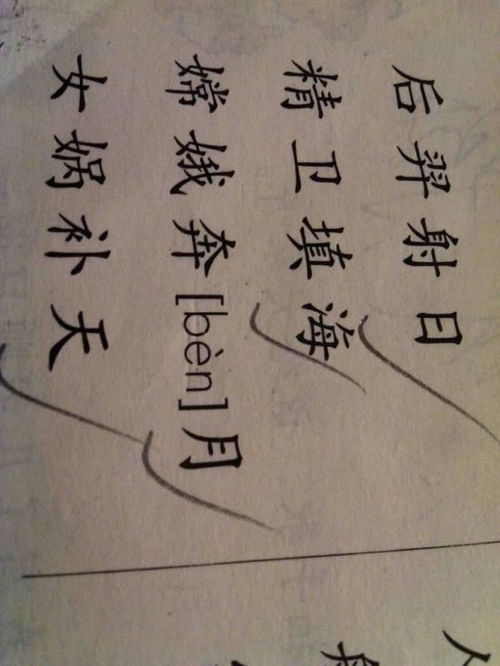 后羿射日
精卫填海
嫦娥奔[bèn]月
女娲补天